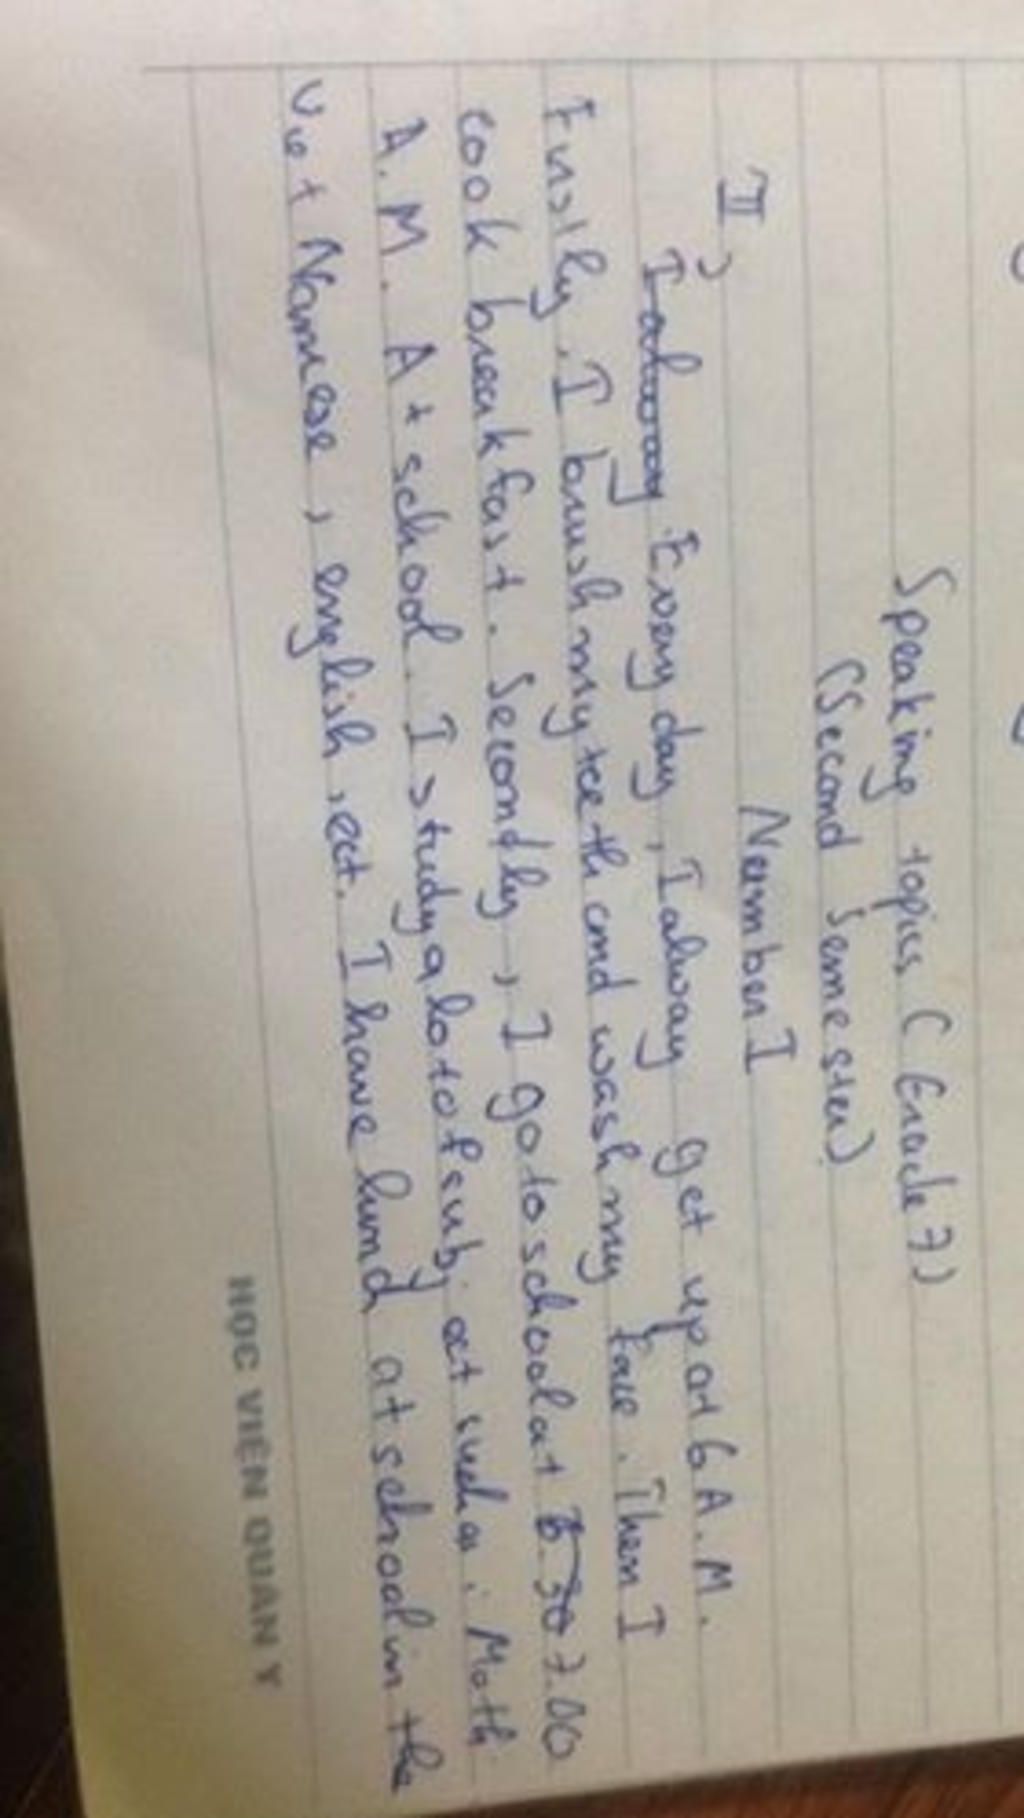 Speaking topics (Grade 7)
(Second Semester)
Number I
II,
I alway Every day, I alway get up at 6 A.M.
Firstly, I brush my teeth and wash my face. Then I
cook breakfast. Secondly, I go to school at 6.30 7.00
A.M. At school. I study a lot of subj ect such as: Math
Viet Namese, english, ect. I have lund at school in the
HỌC VIỆN QUÂN Y